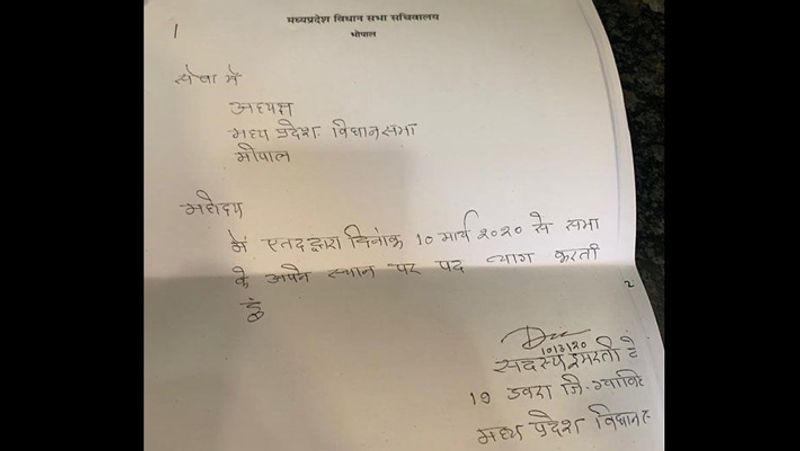 मध्यप्रदेश विधान सभा सचिवालय
भोपाल
1
सेवा में
अध्यक्ष
मध्य प्रदेश विधानसभा
भोपाल
महोदय
में एतदद्वारा दिनांक 10 मार्च २०२० से सभा
के अपने स्थान पर पद त्याग करती
हूं
2
10/3/20
सदस्य इमरती दे
19 डबरा जि. ग्वालि
मध्य प्रदेश विधान